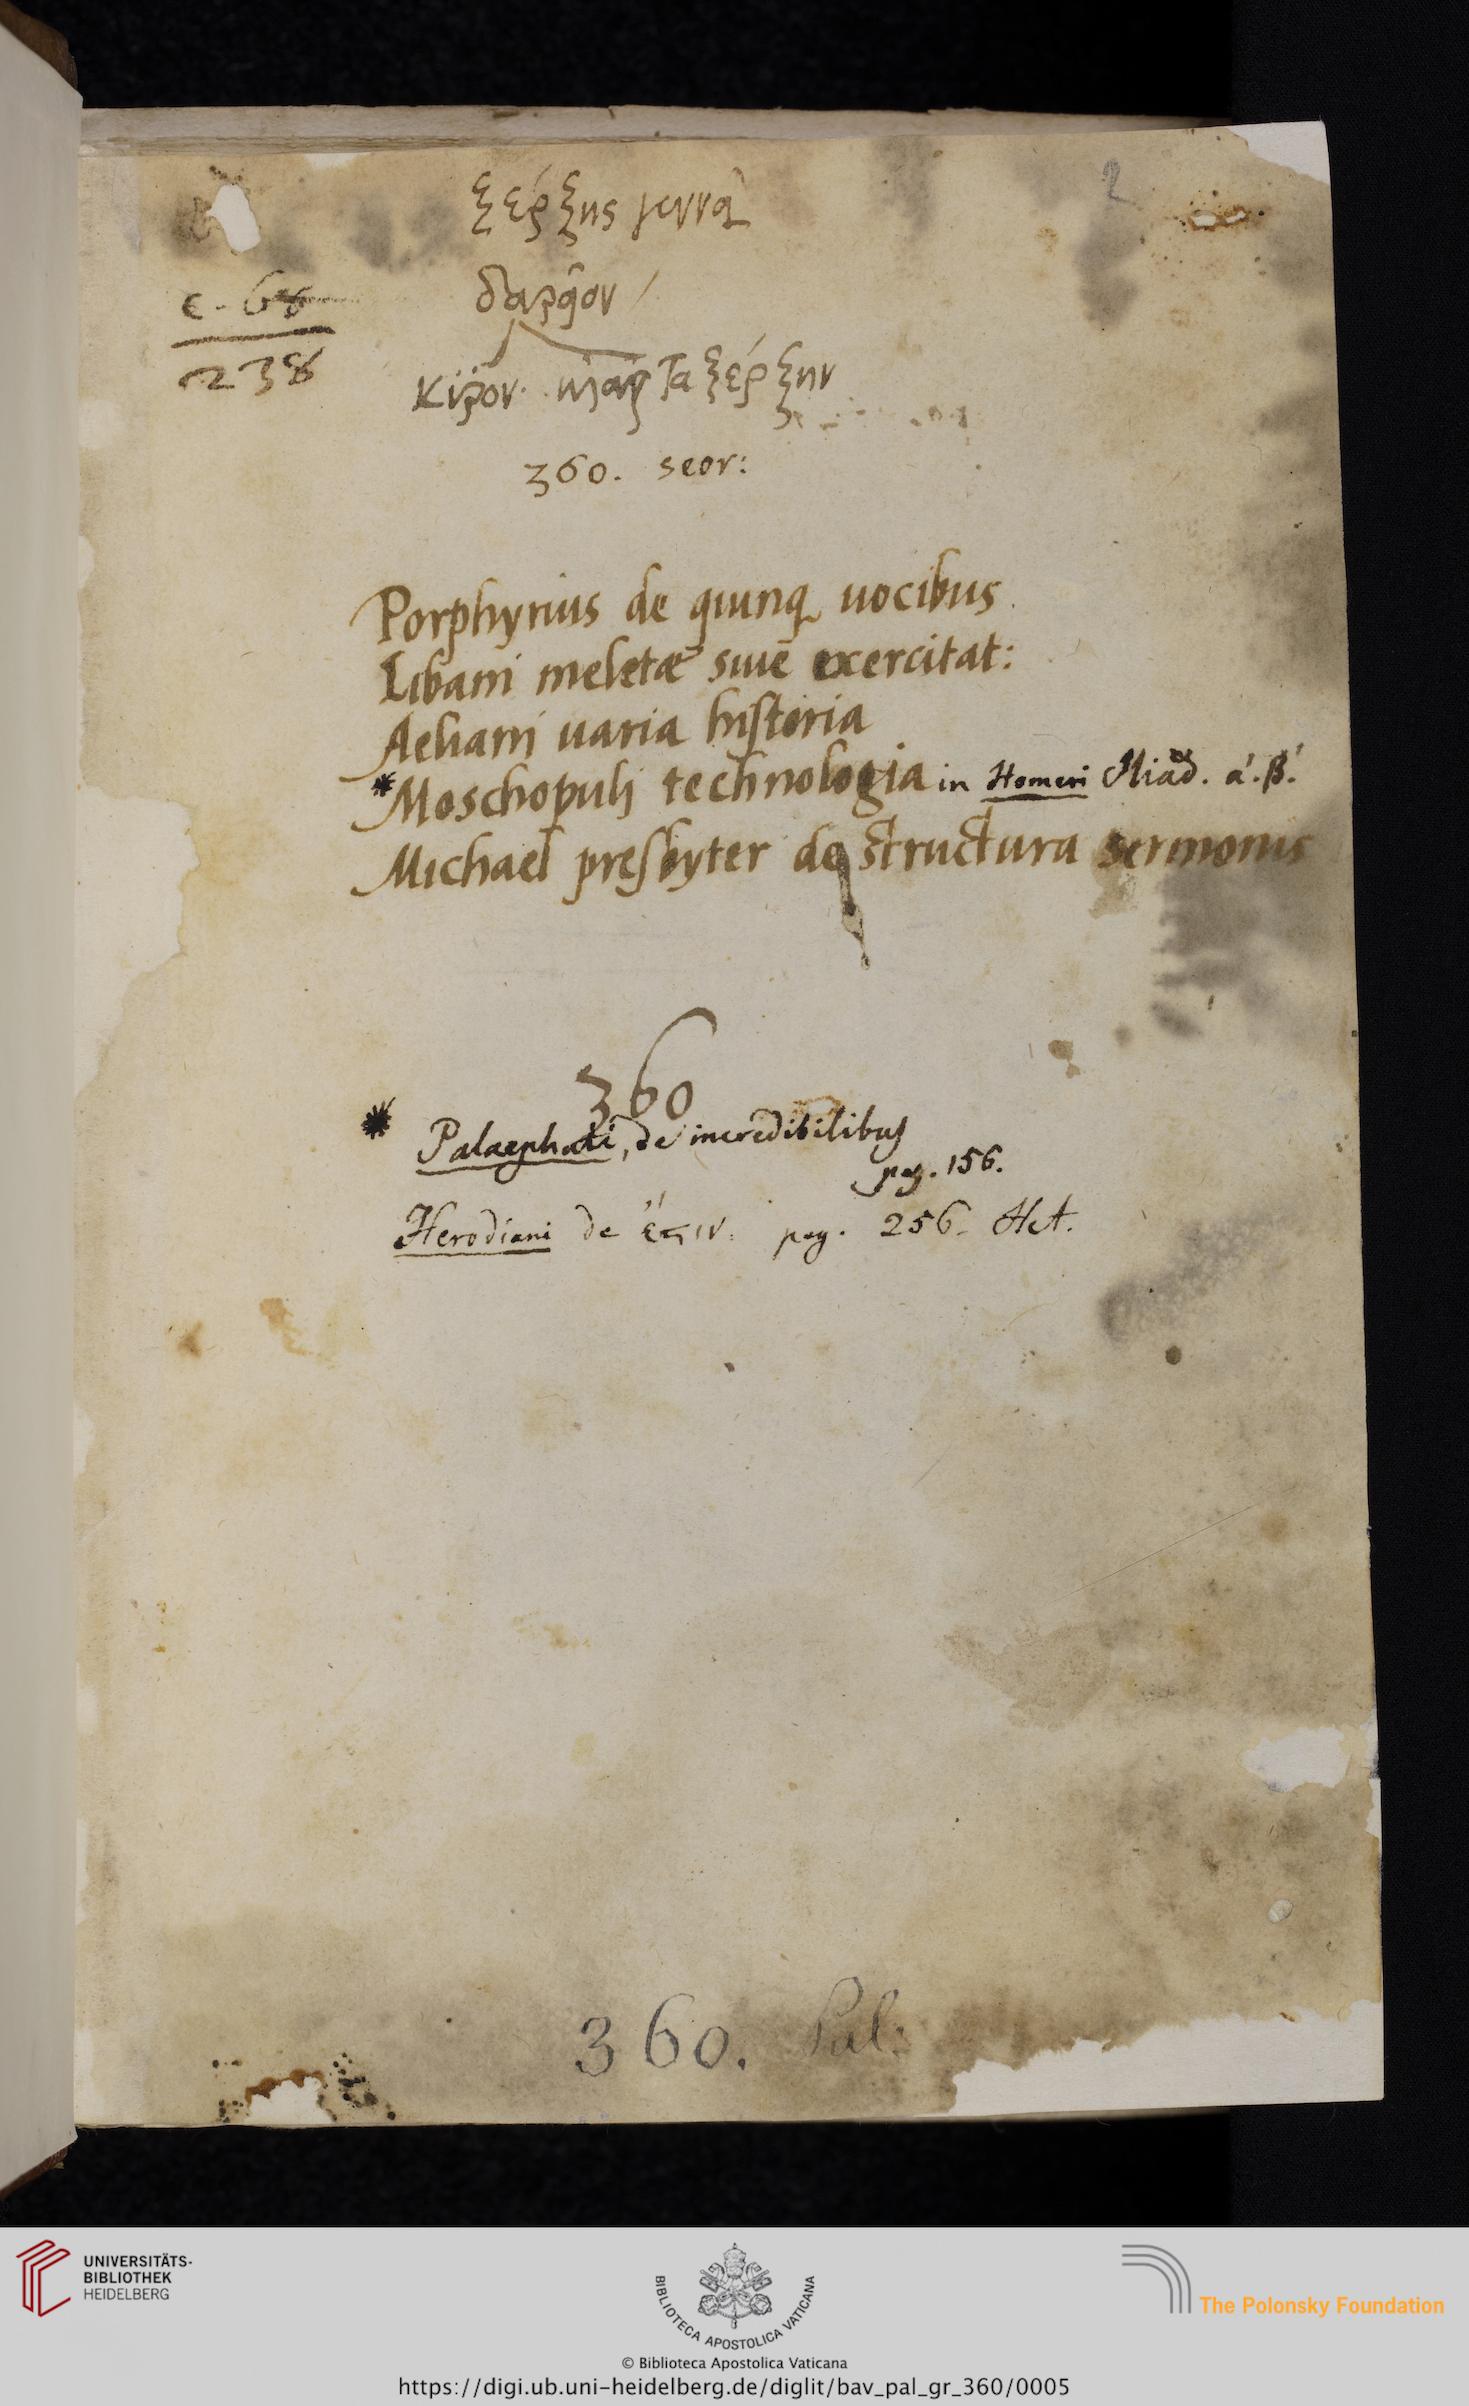 2
ξέρξης γεννᾷ
c. 68
238
δαρεῖον
κῦρον. κ̀ ἀρταξέρξην
360. seor:
Porphyrius de quinq uocibus
Libanii meletæ siue exercitat:
Aeliani uaria historia
*Moschopuli technologia in Homeri Iliad. α'. β'.
Michael presbyter de structura sermonis
360
* Palaephati, de incredibilibus
pag. 156.
Herodiani de ἔςιν. pag. 256.
360. Pal:
UNIVERSITÄTS-
BIBLIOTHEK
HEIDELBERG
BIBLIOTECA APOSTOLICA VATICANA
The Polonsky Foundation
© Biblioteca Apostolica Vaticana
https://digi.ub.uni-heidelberg.de/diglit/bav_pal_gr_360/0005